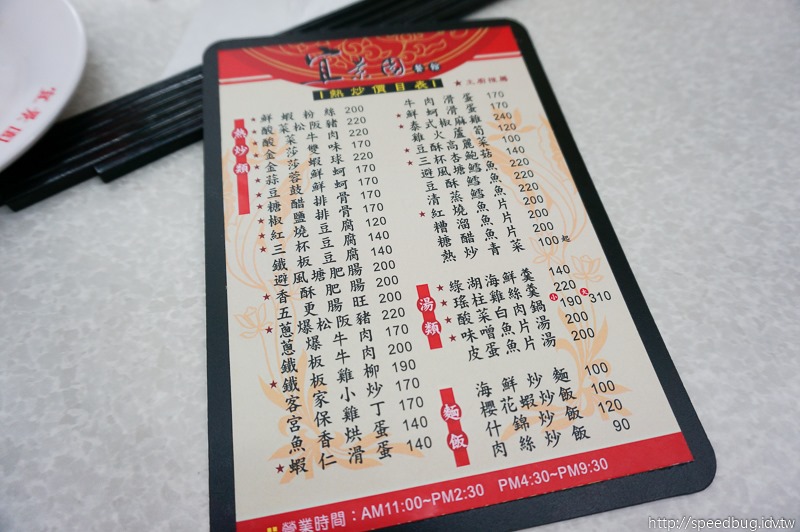 宜景園餐館
熱炒價目表
★主廚推薦
熱炒類
★鮮蝦粉絲 200
酸菜松阪豬 220
★酸菜牛肉 220
金莎雙味 220
★金莎蝦球 220
蒜蓉鮮蚵 170
★豆鼓鮮蚵 170
糖醋排骨 170
★椒鹽排骨 170
紅燒豆腐 120
三杯豆腐 140
鐵板豆腐 140
避風塘肥腸 200
★香酥肥腸 200
五更腸旺 200
★蔥爆松阪豬 220
蔥爆牛肉 170
鐵板牛肉 200
★鐵板雞柳 190
客家小炒 170
宮保雞丁 170
魚香烘蛋 140
★蝦仁滑蛋 140
牛肉滑蛋 170
鮮蚵滑蛋 170
★泰式椒麻雞 240
雞火蘆筍 120
★豆酥高麗菜 140
★三杯杏鮑菇 170
避風塘鱈魚 220
豆酥鱈魚 220
清蒸鱈魚 220
★紅燒魚片 200
糟溜魚片 200
糖醋魚片 200
熱炒青菜 100起
湯類
★綠湖海鮮羹 140
★瑤柱雞絲羹 220
★酸菜白魚鍋 小190 大310
味噌魚片湯 200
★皮蛋魚片湯 200
麵飯
海鮮炒麵 100
櫻花蝦炒飯 100
什錦炒飯 120
肉絲炒飯 90
營業時間：AM11:00~PM2:30 PM4:30~PM9:30
宜景園
http://speedbug.idv.tw